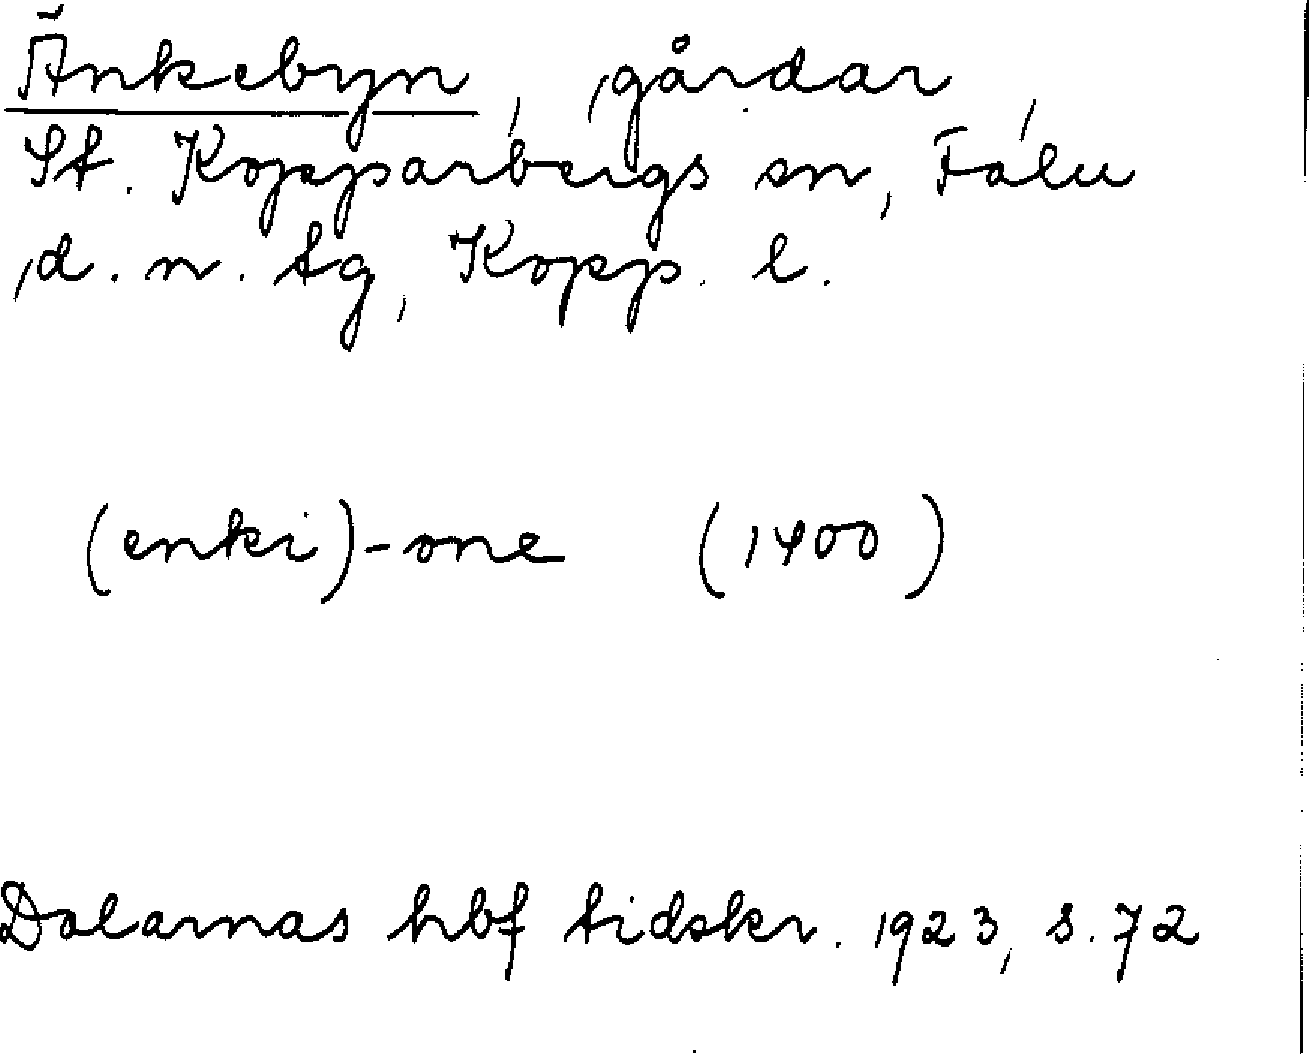 Änkebyn, gårdar
St. Kopparbergs sn, Falu
d. n. tg, Kopp. l.
(enki)-one (1400)
Dalarnas hbf tidskr. 1923, s. 72